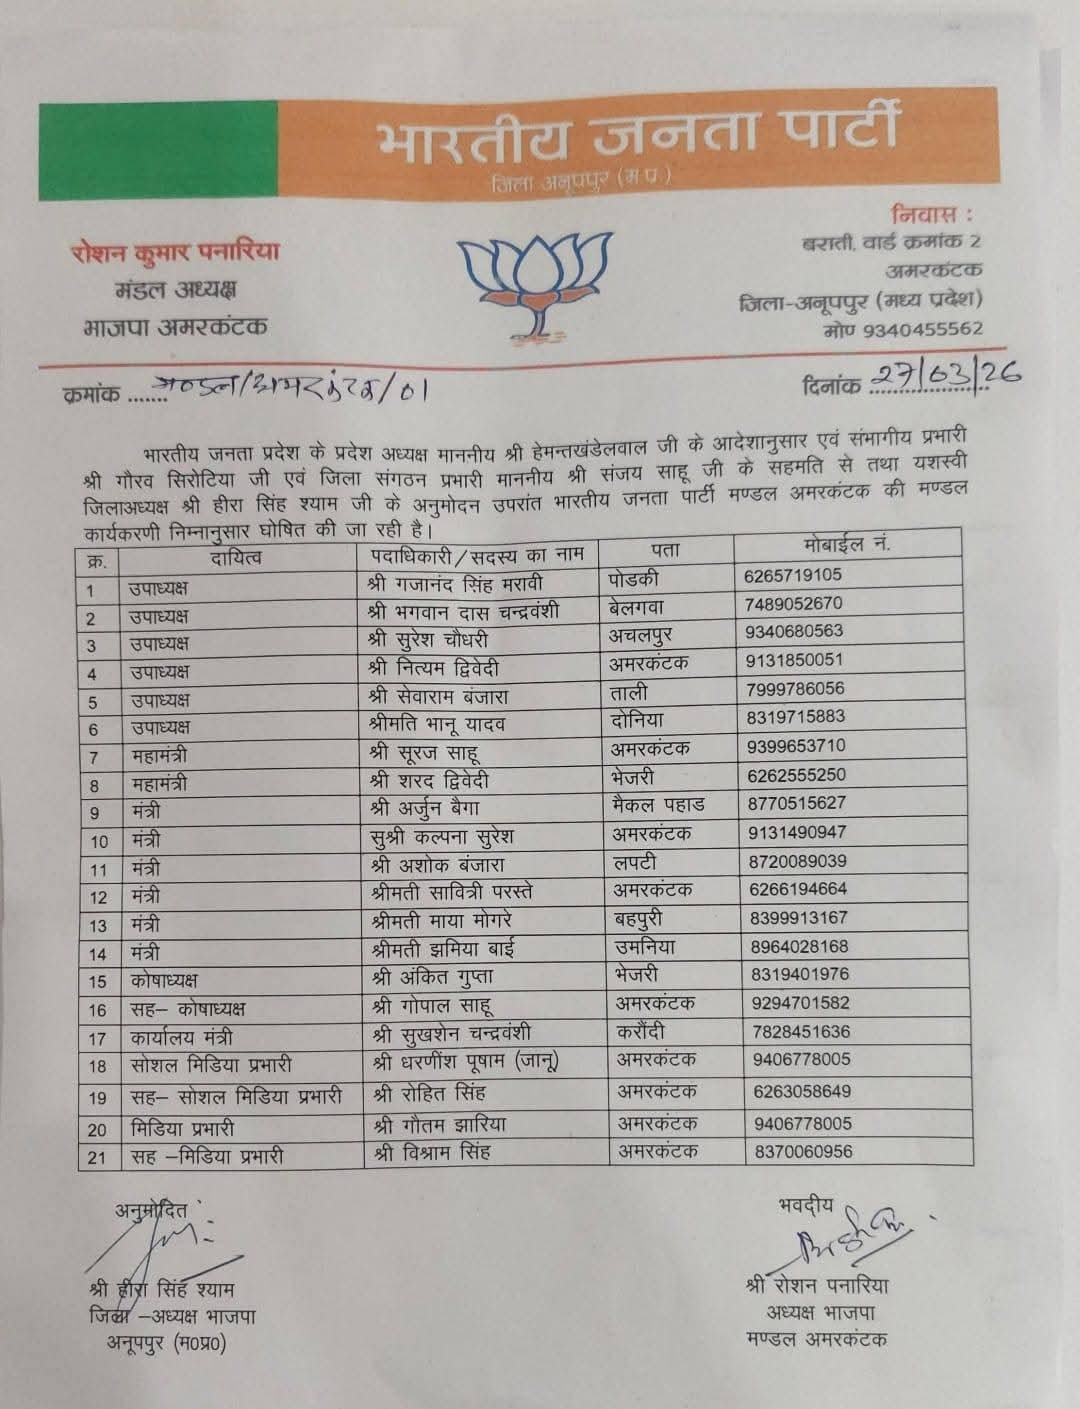 भारतीय जनता पार्टी
जिला अनूपपुर (म.प्र.)
रोशन कुमार पनारिया
मंडल अध्यक्ष
भाजपा अमरकंटक
निवास :
बराती, वार्ड क्रमांक 2
अमरकंटक
जिला-अनूपपुर (मध्य प्रदेश)
मोण 9340455562
क्रमांक ....... मण्डल/अमरकंटक/01
दिनांक 27/03/26
भारतीय जनता प्रदेश के प्रदेश अध्यक्ष माननीय श्री हेमन्तखंडेलवाल जी के आदेशानुसार एवं संभागीय प्रभारी
श्री गौरव सिरोटिया जी एवं जिला संगठन प्रभारी माननीय श्री संजय साहू जी के सहमति से तथा यशस्वी
जिलाअध्यक्ष श्री हीरा सिंह श्याम जी के अनुमोदन उपरांत भारतीय जनता पार्टी मण्डल अमरकंटक की मण्डल
कार्यकरणी निम्नानुसार घोषित की जा रही है।
क्र. दायित्व पदाधिकारी/सदस्य का नाम पता मोबाईल नं.
1 उपाध्यक्ष श्री गजानंद सिंह मरावी पोडकी 6265719105
2 उपाध्यक्ष श्री भगवान दास चन्द्रवंशी बेलगवा 7489052670
3 उपाध्यक्ष श्री सुरेश चौधरी अचलपुर 9340680563
4 उपाध्यक्ष श्री नित्यम द्विवेदी अमरकंटक 9131850051
5 उपाध्यक्ष श्री सेवाराम बंजारा ताली 7999786056
6 उपाध्यक्ष श्रीमति भानू यादव दोनिया 8319715883
7 महामंत्री श्री सूरज साहू अमरकंटक 9399653710
8 महामंत्री श्री शरद द्विवेदी भेजरी 6262555250
9 मंत्री श्री अर्जुन बैगा मैकल पहाड 8770515627
10 मंत्री सुश्री कल्पना सुरेश अमरकंटक 9131490947
11 मंत्री श्री अशोक बंजारा लपटी 8720089039
12 मंत्री श्रीमती सावित्री परस्ते अमरकंटक 6266194664
13 मंत्री श्रीमती माया मोगरे बहपुरी 8399913167
14 मंत्री श्रीमती झमिया बाई उमनिया 8964028168
15 कोषाध्यक्ष श्री अंकित गुप्ता भेजरी 8319401976
16 सह– कोषाध्यक्ष श्री गोपाल साहू अमरकंटक 9294701582
17 कार्यालय मंत्री श्री सुखशेन चन्द्रवंशी करौंदी 7828451636
18 सोशल मिडिया प्रभारी श्री धरणींश पूषाम (जानू) अमरकंटक 9406778005
19 सह– सोशल मिडिया प्रभारी श्री रोहित सिंह अमरकंटक 6263058649
20 मिडिया प्रभारी श्री गौतम झारिया अमरकंटक 9406778005
21 सह –मिडिया प्रभारी श्री विश्राम सिंह अमरकंटक 8370060956
अनुमोदित
श्री हीरा सिंह श्याम
जिला –अध्यक्ष भाजपा
अनूपपुर (म0प्र0)
भवदीय
श्री रोशन पनारिया
अध्यक्ष भाजपा
मण्डल अमरकंटक